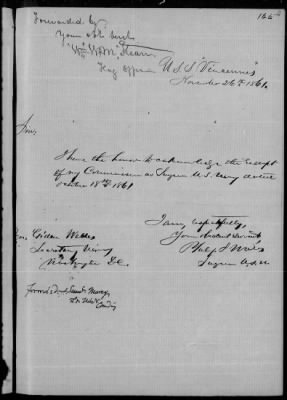 166
Forwarded by
Your obt servt
Wm W. M. Kean,
Flag Officer
U.S.S. "Vincennes"
November 26th 1861.
Sir,
I have the honor to acknowledge the receipt
of my Commission as Surgeon U.S. Navy dated
October 18th 1861
I am, respectfully,
Your Obedient Servant
Surgeon U.S.N.
Hon. Gideon Welles
Secretary Navy
Washington D.C.
Forwarded,